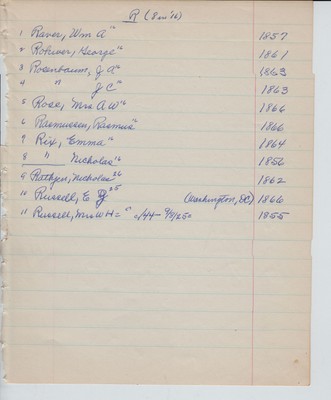 R (8 in '26)
1 Raver, Wm A 26 1857
2 Rohwer, George 26 1861
3 Rosenbaum, J A 26 1863
4 " J C " 1863
5 Rose, Mrs A W 26 1866
6 Rasmussen, Rasmus 26 1866
7 Rix, Emma 26 1864
8 " Nicholas 26 1856
9 Rathjen, Nicholas 26 1862
10 Russell, E 25 (Washington, DC) 1866
11 Russell, Mrs W H = 1855